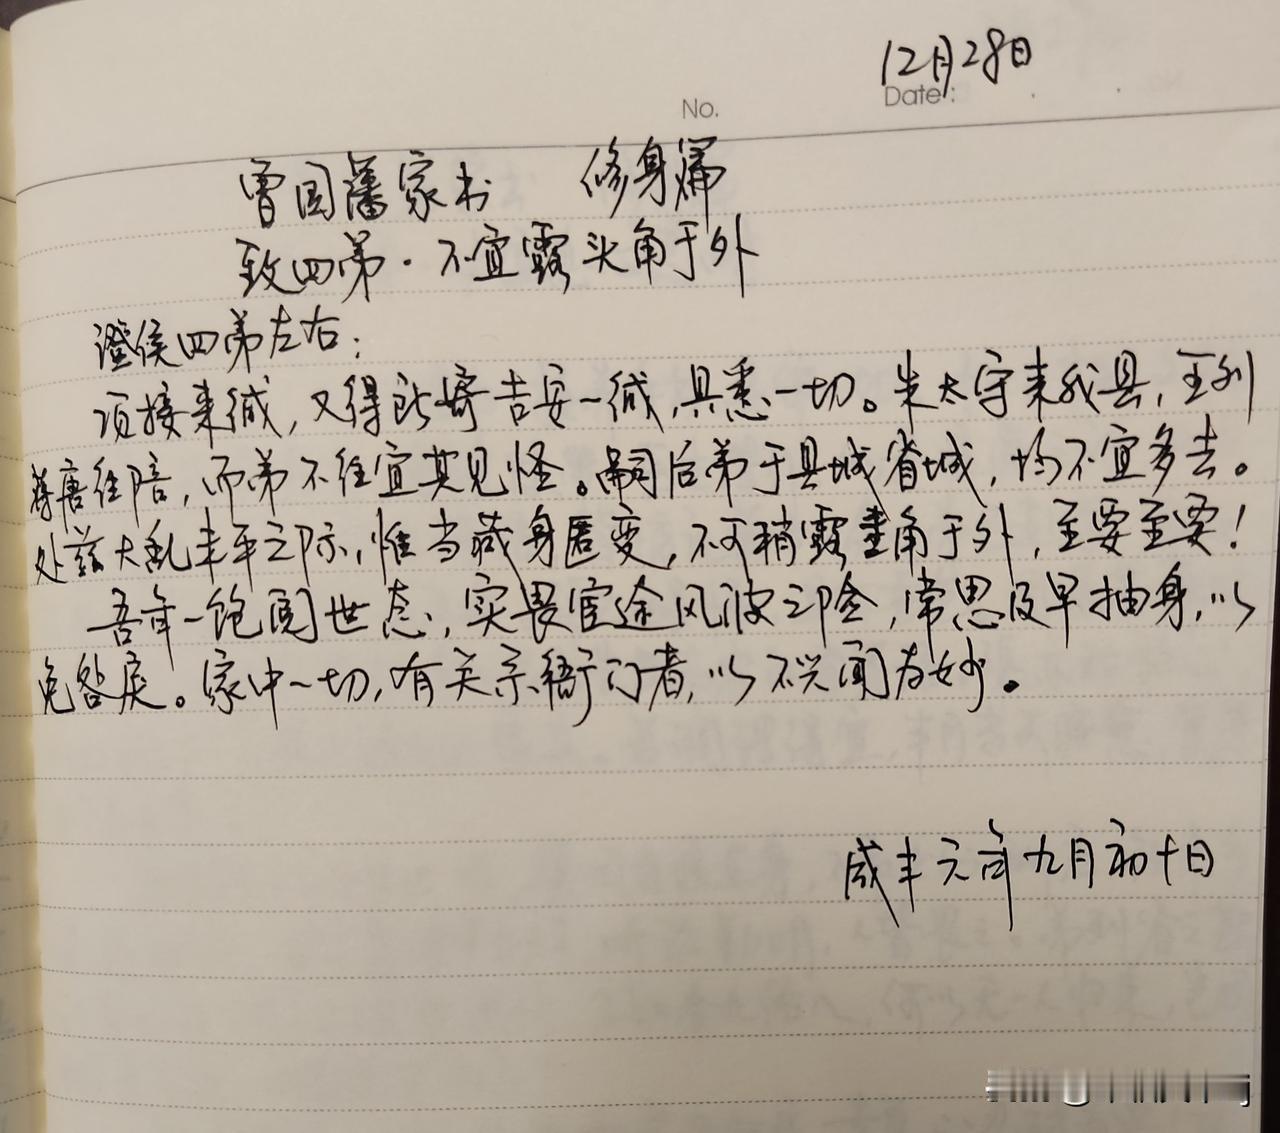 12月28日
No.
Date:
曾国藩家书 修身篇
致四弟·不宜露头角于外
澄侯四弟左右:
顷接来缄,又得所寄吉安一缄,具悉一切。朱太守来我县,王刘
蒋唐往陪,而弟不往宜其见怪。嗣后弟于县城省城,均不宜多去。
处兹大乱未平之际,惟当藏身匿变,不可稍露圭角于外,至要至要!
吾年一饱阅世态,实畏宦途风波之险,常思及早抽身,以
免咎戾。家中一切,有关系衙门者,以不兴闻为妙。
咸丰元年九月初十日